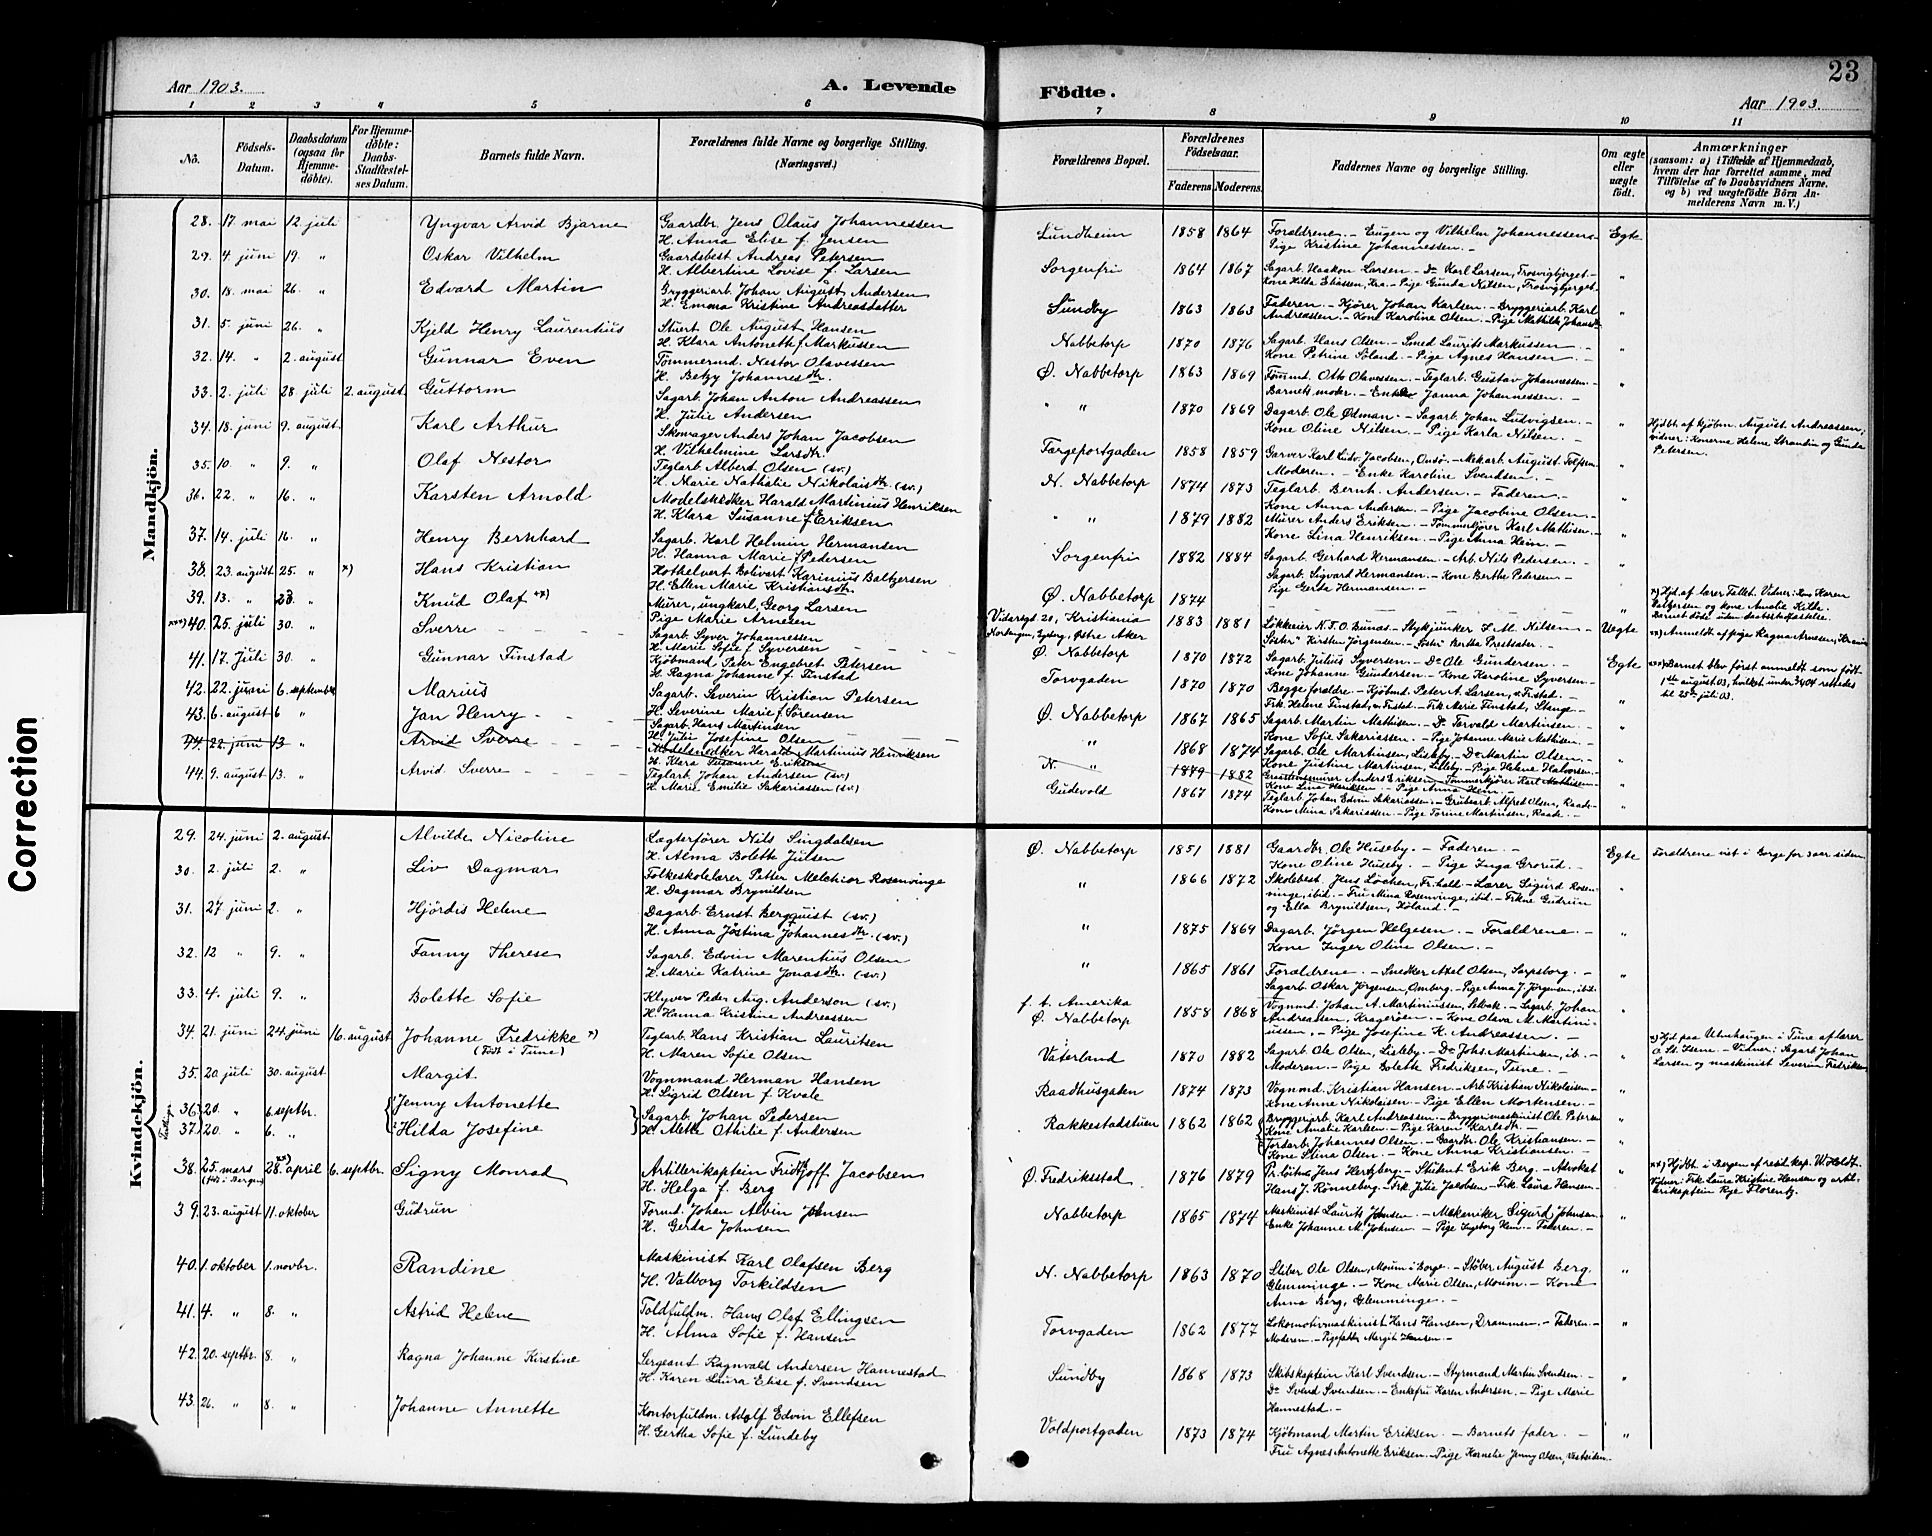 Correction
Aar 1903.
A. Levende
Födte.
23
Aar 1903.
1 2 3 4 5 6 7 8 9 10 11
No.
Födsels-
Datum.
Daabsdatum
(ogsaa for
Hjemme-
döbte).
For Hjemme-
döbte:
Daabs-
Stadfæstel-
ses Datum.
Barnets fulde Navn.
Forældrenes fulde Navne og borgerlige Stilling.
(Næringsvei.)
Forældrenes Bopæl.
Forældrenes
Födselsaar.
Faderens. Moderens.
Faddernes Navne og borgerlige Stilling.
Om ægte
eller
uægte
födt.
Anmærkninger
(saasom: a) i Tilfælde af Hjemmedaab,
hvem der har forrettet samme, med
Tilföielse af to Daabsvidners Navne,
og b) ved uægtefödte Börn An-
melderens Navn m. V.)
Mandkjön.
28. 17. mai 12. juli Yngvar Arvid Bjarne
Gaardbr. Jens Olaus Johannessen
H. Anna Elise f. Jensen
Lundheim 1858 1864
Forældrene. - Eugen og Vilhelm Johannessens
Pige Kristine Johannessen. -
Egte
29. 4. juni 19. " Oskar Vilhelm
Gaardsbest. Andreas Petersen
H. Albertine Lovise f. Larsen
Sorgenfri 1864 1867
Sagarb. Haakon Larsen. - Do Karl Larsen, Trosvigbjerget. -
Kone Hilda Eliassen, Kra. - Pige Gunda Nilsen, Trosvigbjerget.
"
30. 18. mai 26. " Edvard Martin
Bryggeriarb. Johan August Andersen
H. Emma Kristine Andreasdatter
Sundby 1863 1863
Faderen. - Kjører Johan Karlsen. - Bryggeriarb. Karl
Andreassen. - Kone Karoline Olsen. - Pige Mathilde Johansdr.
"
31. 5. juni 26. " Kjeld Henry Laurentius
Stuert Ole August Hansen
H. Klara Antonette f. Markussen
Nabbetorp 1870 1876
Sagarb. Hans Olsen. - Smed Laurits Markussen. -
Kone Petrine Söland. - Pige Agnes Hansen. -
"
32. 14. " 2. august Gunnar Even
Tømmermd. Nestor Olavessen
H. Betzy Johannesdtr.
Ø. Nabbetorp 1863 1869
Tømmd. Otto Olavessen. - Teglarb. Gustav Johannessen. -
Barnets moder. - Enke Janna Johannessen. -
"
33. 2. juli 28. juli 2. august Guttorm
Sagarb. Johan Anton Andreassen
H. Julie Andersen
" " 1870 1869
Dagarb. Ole Østman. - Sagarb. Johan Ludvigsen. -
Kone Oline Nilsen. - Pige Karla Nilsen. -
"
Hjdbt. af kjøbm. August Andreassen;
vidner: Konerne Helene Strandin og Gunda
Petersen.
34. 18. juni 9. august Karl Arthur
Skomager Anders Johan Jacobsen
H. Vilhelmine Larsdtr.
Færgeportgaden 1858 1859
Garver Karl Ludv. Jacobsen, Onsö. - Mekarb. August Tolfsen.
Moderen. - Enke Karoline Svendsen. -
"
35. 10. " 9. " Olaf Nestor
Teglarb. Albert Olsen (sv.)
H. Marie Nathalie Nikolaisdtr. (sv.)
N. Nabbetorp 1874 1873
Teglarb. Bernh. Andersen. - Faderen. -
Kone Anna Andersen. - Pige Jacobine Olsen. -
"
36. 22. " 16. " Karsten Arnold
Modelsnedker Harald Martinius Henriksen
H. Klara Susanne f. Eriksen
" " 1879 1882
Murer Anders Eriksen - Tømmerkjører Karl Mathisen. -
Kone Lina Henriksen. - Pige Anna Heim. -
"
37. 14. juli 16. " Henry Bernhard
Sagarb. Karl Helmin Hermansen
H. Hanna Marie f. Pedersen
Sorgenfri 1882 1884
Sagarb. Gerhard Hermansen. - Arb. Nils Pedersen. -
Sagarb. Sigvard Hermansen. - Kone Berthe Pedersen. -
Pige Gerda Hermansen. -
"
38. 23. august 25. " x) Hans Kristian
Hothelvert Bolivart Karinius Baltzersen
H. Ellen Marie Kristiansdtr.
Ø. Nabbetorp 1874
"
x) Hjd. af lærer Fallet. Vidner: Kone Karen
Baltzersen og kone Amalie Kilde.
Barnet döde uden daabsstadfæstelse.
39. 13. " 23. " Knud Olaf xx)
Murer, ungkarl, Georg Larsen
Pige Marie Arnesen
Vidarsgd. 21, Kristiania
Østre Aker
1883 1881
Løkkeeier N. F. O. Bunæs - Stykjunker S. M. Nilsen. -
"Søster" Kirsten Jörgensen. - Søster Bertha Prestsater. -
Uegte
xx) Anmeldt af pige Ragna Arnesen, Kra
xxx) 40. 25. juli 30. " Sverre
Sagarb. Syver Johannessen
H. Marie Sofie f. Syversen
Ø. Nabbetorp 1870 1872
Sagarb. Julius Syversen. - Do Ole Gundersen. -
Kone Johanne Gundersen. - Kone Karoline Syversen. -
Egte
xxx) Barnet blev først anmeldt som født
1ste august 03, hvilket under 3/4 04 rettedes
til 25de juli 03.
41. 17. Juli 30. " Gunnar Tinstad
Kjöbmand Peter Engebret Petersen
H. Ragna Johanne f. Tinstad
Torvgaden 1870 1870
Begge forældre. - Kjöbmd. Peter A. Larsen, v. Fr.stad. -
Frk. Helene Tinstad, v. Fr.stad. - Frk. Marie Tinstad, Stange. -
"
42. 22. juni 6. september Marius
Sagarb. Severin Kristian Petersen
H. Severine Marie f. Sørensen
Ø. Nabbetorp 1867 1865
Sagarb. Martin Mathisen. - Do Torvald Martinsen. -
Kone Sofie Sakariassen. - Pige Johanne Marie Mathisen. -
"
43. 6. august 6 " Jan Henry
Sagarb. Hans Martinsen
H. Julie Josefine Olsen
" 1868 1874
Sagarb. Ole Martinsen, Lisleby. - Do Martin Olsen. -
Kone Justine Martinsen, Lisleby. - Pige Helene Halvorsen. -
"
44. 22. juni 13 " Arvid Sverre
Modelsnedker Harald Martinius Henriksen
H. Klara Susanne Eriksen
N. " 1879 1882
Grundstensmurer Anders Eriksen. - Tømmerkjører Karl Mathisen
Kone Lina Henriksen. - Pige Anna Heim. -
44. 9. august 13. " Arvid Sverre
Teglarb. Johan Andersen (sv.)
H. Marie Emilie Sakariassen (sv.)
Gudevold 1867 1874
Teglarb. Johan Edvin Sakariassen. - Grubarb. Alfred Olsen, Raade. -
Kone Mina Sakariassen. - Pige Torine Martinsen, Raade. -
"
Kvindekjön.
29. 24. juni 2. august Alvilde Nicoline
Lægterfører Nils Singdalsen
H. Alma Bolette Julsen
Ø. Nabbetorp 1851 1881
Gaardbr. Ole Huseby. - Faderen. -
Kone Oline Huseby. - Pige Inga Grorud. -
Egte
Forældrene viet i Borge for 3 aar siden
30. 2. juli 2. " Liv Dagmar
Folkeskolelærer Petter Melchior Rosenvinge
H. Dagmar Brynildsen
" 1866 1872
Skolebest. Jens Löchen, Fr.hald. - Lærer Sigurd Rosen-
vinge, ibid. - Fru Mina Rosenvinge, ibid. - Frkne Gudrun
og Ella Brynildsen, Höland. -
"
31. 27 juni 2. " Hjördis Helene
Dagarb. Ernst Bergquist (sv.)
H. Anna Jostina Johannesdtr. (sv.)
" 1875 1864
Dagarb. Jörgen Helgesen. - Forældrene. -
Kone Inger Oline Olsen. -
"
32. 12 " 9. " Fanny Therese
Sagarb. Edvin Marentius Olsen
H. Marie Katrine Jonasdtr. (sv.)
" 1865 1861
Forældrene. - Snedker Axel Olsen, Sarpsborg. -
Sagarb. Oskar Jörgensen, Omberg. - Pige Anna J. Jörgensen, ibid.
"
33. 4. juli 9. " Bolette Sofie
Klyver Peder Aug. Anderson (sv.)
H. Hanna Kristine Andreassen
f. t. Amerika
Ø. Nabbetorp 1858 1868
Vognmd. Johan A. Martiniussen, Selbak. - Sagarb. Johan
Andreassen, Kragerøen. - Kone Olava M. Martini-
ussen. - Pige Josefine K. Andreassen. -
"
34. 21. juni 24. juni 16. august Johanne Fredrikke x)
(Født i Tune)
Teglarb. Hans Kristian Lauritsen
H. Maren Sofie Olsen
Vaterland 1870 1882
Sagarb. Ole Olsen, Lisleby. - Do Johs. Martinsen, ib. -
Moderen. - Pige Bolette Fredriksen, Tune. -
"
x) Hjd. paa Ulvehaugen i Tune af lærer
O. St. Isene. - Vidner: Sagarb. Johan
Larsen og maskinist Severin Fredriksen
35. 20 juli 30. august Margit
Vognmand Herman Hansen
H. Sigrid Olsen f. Kvale
Raadhusgaden 1874 1873
Vognmd. Kristian Hansen. - Arb. Kristian Nikolaisen. -
Kone Anne Nikolaisen. - Pige Ellen Mortensen. -
"
36. 20. " 6. septbr. Jenny Antonette
37. 20. " 6. " Hilda Josefine
Sagarb. Johan Pedersen
H. Mette Othilie f. Andersen
Rakkestadstuen 1862 1862
Bryggeriarb. Karl Andreassen. - Bryggerimaskinist Ole Petersen
Kone Amalie Karlsen. - Pige Karen Karlsdtr. -
Jordarb. Johannes Olsen. - Gaardbr. Ole Kristiansen. -
Kone Stina Olsen. - Kone Anna Kristiansen. -
" "
38. 25. mars
(født i Bergen)
28. xx) april 6. septbr. Signy Monrad
Artillerikaptein Fridtjoff Jacobsen
H. Helga f. Berg
Ø. Fredriksstad 1876 1879
Pr.løitn. Jens Hertzberg. - Student Erik Berg. - Advokat
Hans J. Rönneberg. - Frk. Julie Jacobsen. - Frk. Laura Hansen.
"
xx) Hjdbt. i Bergen af resid. kap. W. Holdt.
Vidner: Frk. Laura Kristine Hansen og artil-
lerikaptein Rye Florentz.
39. 23. august 11. oktober Gudrun
Formd. Johan Alvin Johnsen
H. Gerda Johnsen
Nabbetorp 1865 1874
Maskinist Laurits Johnsen. - Mekaniker Sigurd Johnsen.
Enke Johanne M. Johnsen - Pige Ingeborg Heim. - Faderen. -
"
40. 1. oktober 1. novbr. Randine
Maskinist Karl Olafsen Berg
H. Valborg Torkildsen
N. Nabbetorp 1863 1870
Stiber Ole Olsen, Moum i Borge. - Støber August Berg,
Glemminge. - Kone Marie Olsen, Moum. - Kone
Anna Berg, Glemminge. -
"
41. 4. " 8. " Astrid Helene
Toldfuldm. Hans Olaf Ellingsen
H. Alma Sofie f. Hansen
Torvgaden 1862 1877
Lokomotivmaskinist Hans Hansen, Drammen. - Faderen. -
Moderen. - Pigefadder Margit Hansen. -
"
42. 20. septbr. 8. " Ragna Johanne Kirstine
Sergeant Ragnvald Andersen Hannestad
H. Karen Laura Elise f. Svendsen
Sundby 1868 1873
Skibskaptein Karl Svendsen. - Styrmand Martin Svendsen. -
Do Svend Svendsen. - Enkefru Karen Andersen. - Pige Marie
Hannestad. -
"
43. 26. " 8. " Johanne Annette
Kontorfuldm. Adolf Edvin Ellefsen
H. Gertha Sofie f. Lundeby
Voldportgaden 1873 1874
Kjöbmand Martin Eriksen. - Barnets fader. -
Fru Agnes Antonette Eriksen. - Pige Kornelie Jenny Olsen, Vestsiden.
"